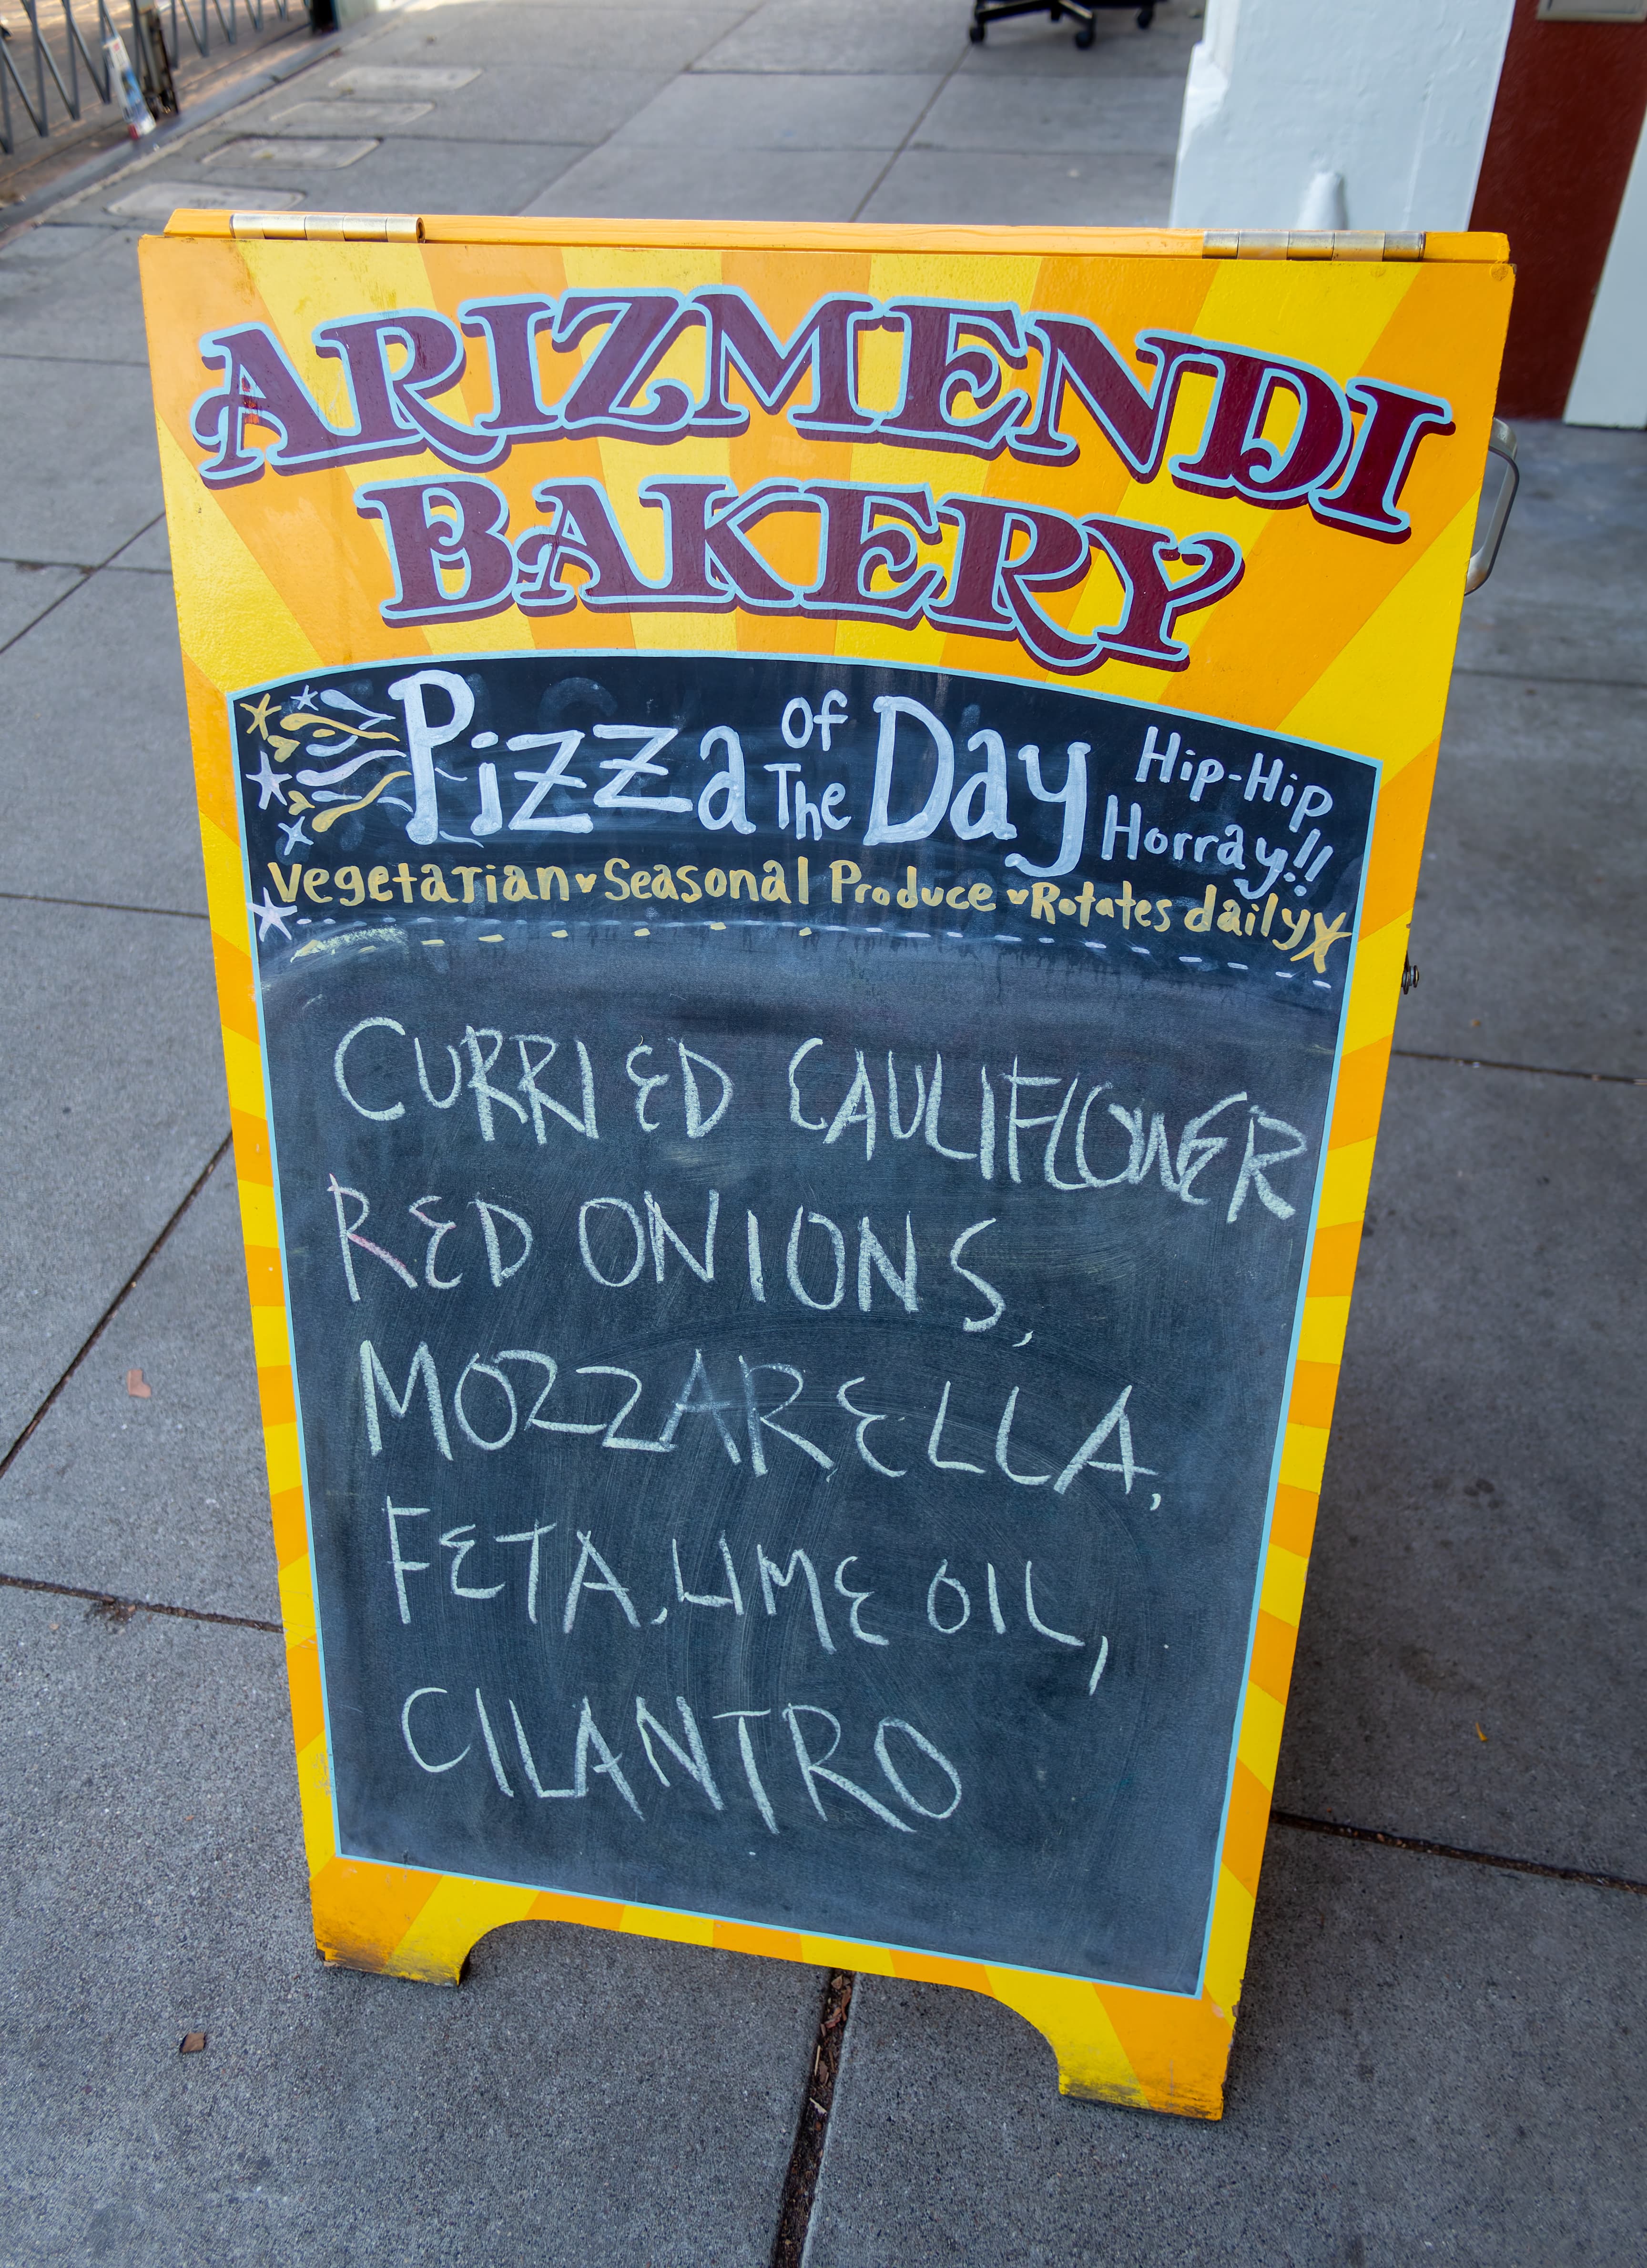 ARIZMENDI
BAKERY
Pizza of The Day Hip-Hip Horray!!
Vegetarian Seasonal Produce Rotates daily
CURRIED CAULIFLOWER
RED ONIONS,
MOZZARELLA,
FETA, LIME OIL,
CILANTRO